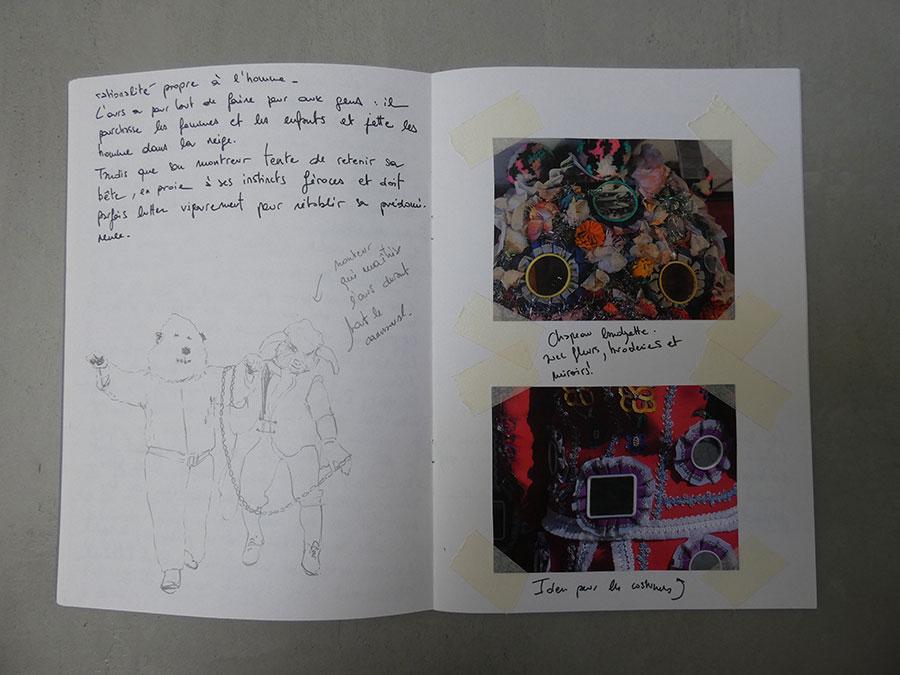 rationalité propre à l'homme_
L'ours a pour but de faire peur aux gens : il
purchasse les femmes et les enfants et jette les
homme dans la neige.
Tandis que son montreur tente de retenir sa
bête, en proie à ses instincts féroces et doit
parfois lutter vigoureusement pour rétablir sa prédomi-
nence.
monteur
qui maîtrise
l'ours durant
tout le
carnaval.
Chapeau
avec fleurs, broderies et
miroirs!
Idem pour les costumes